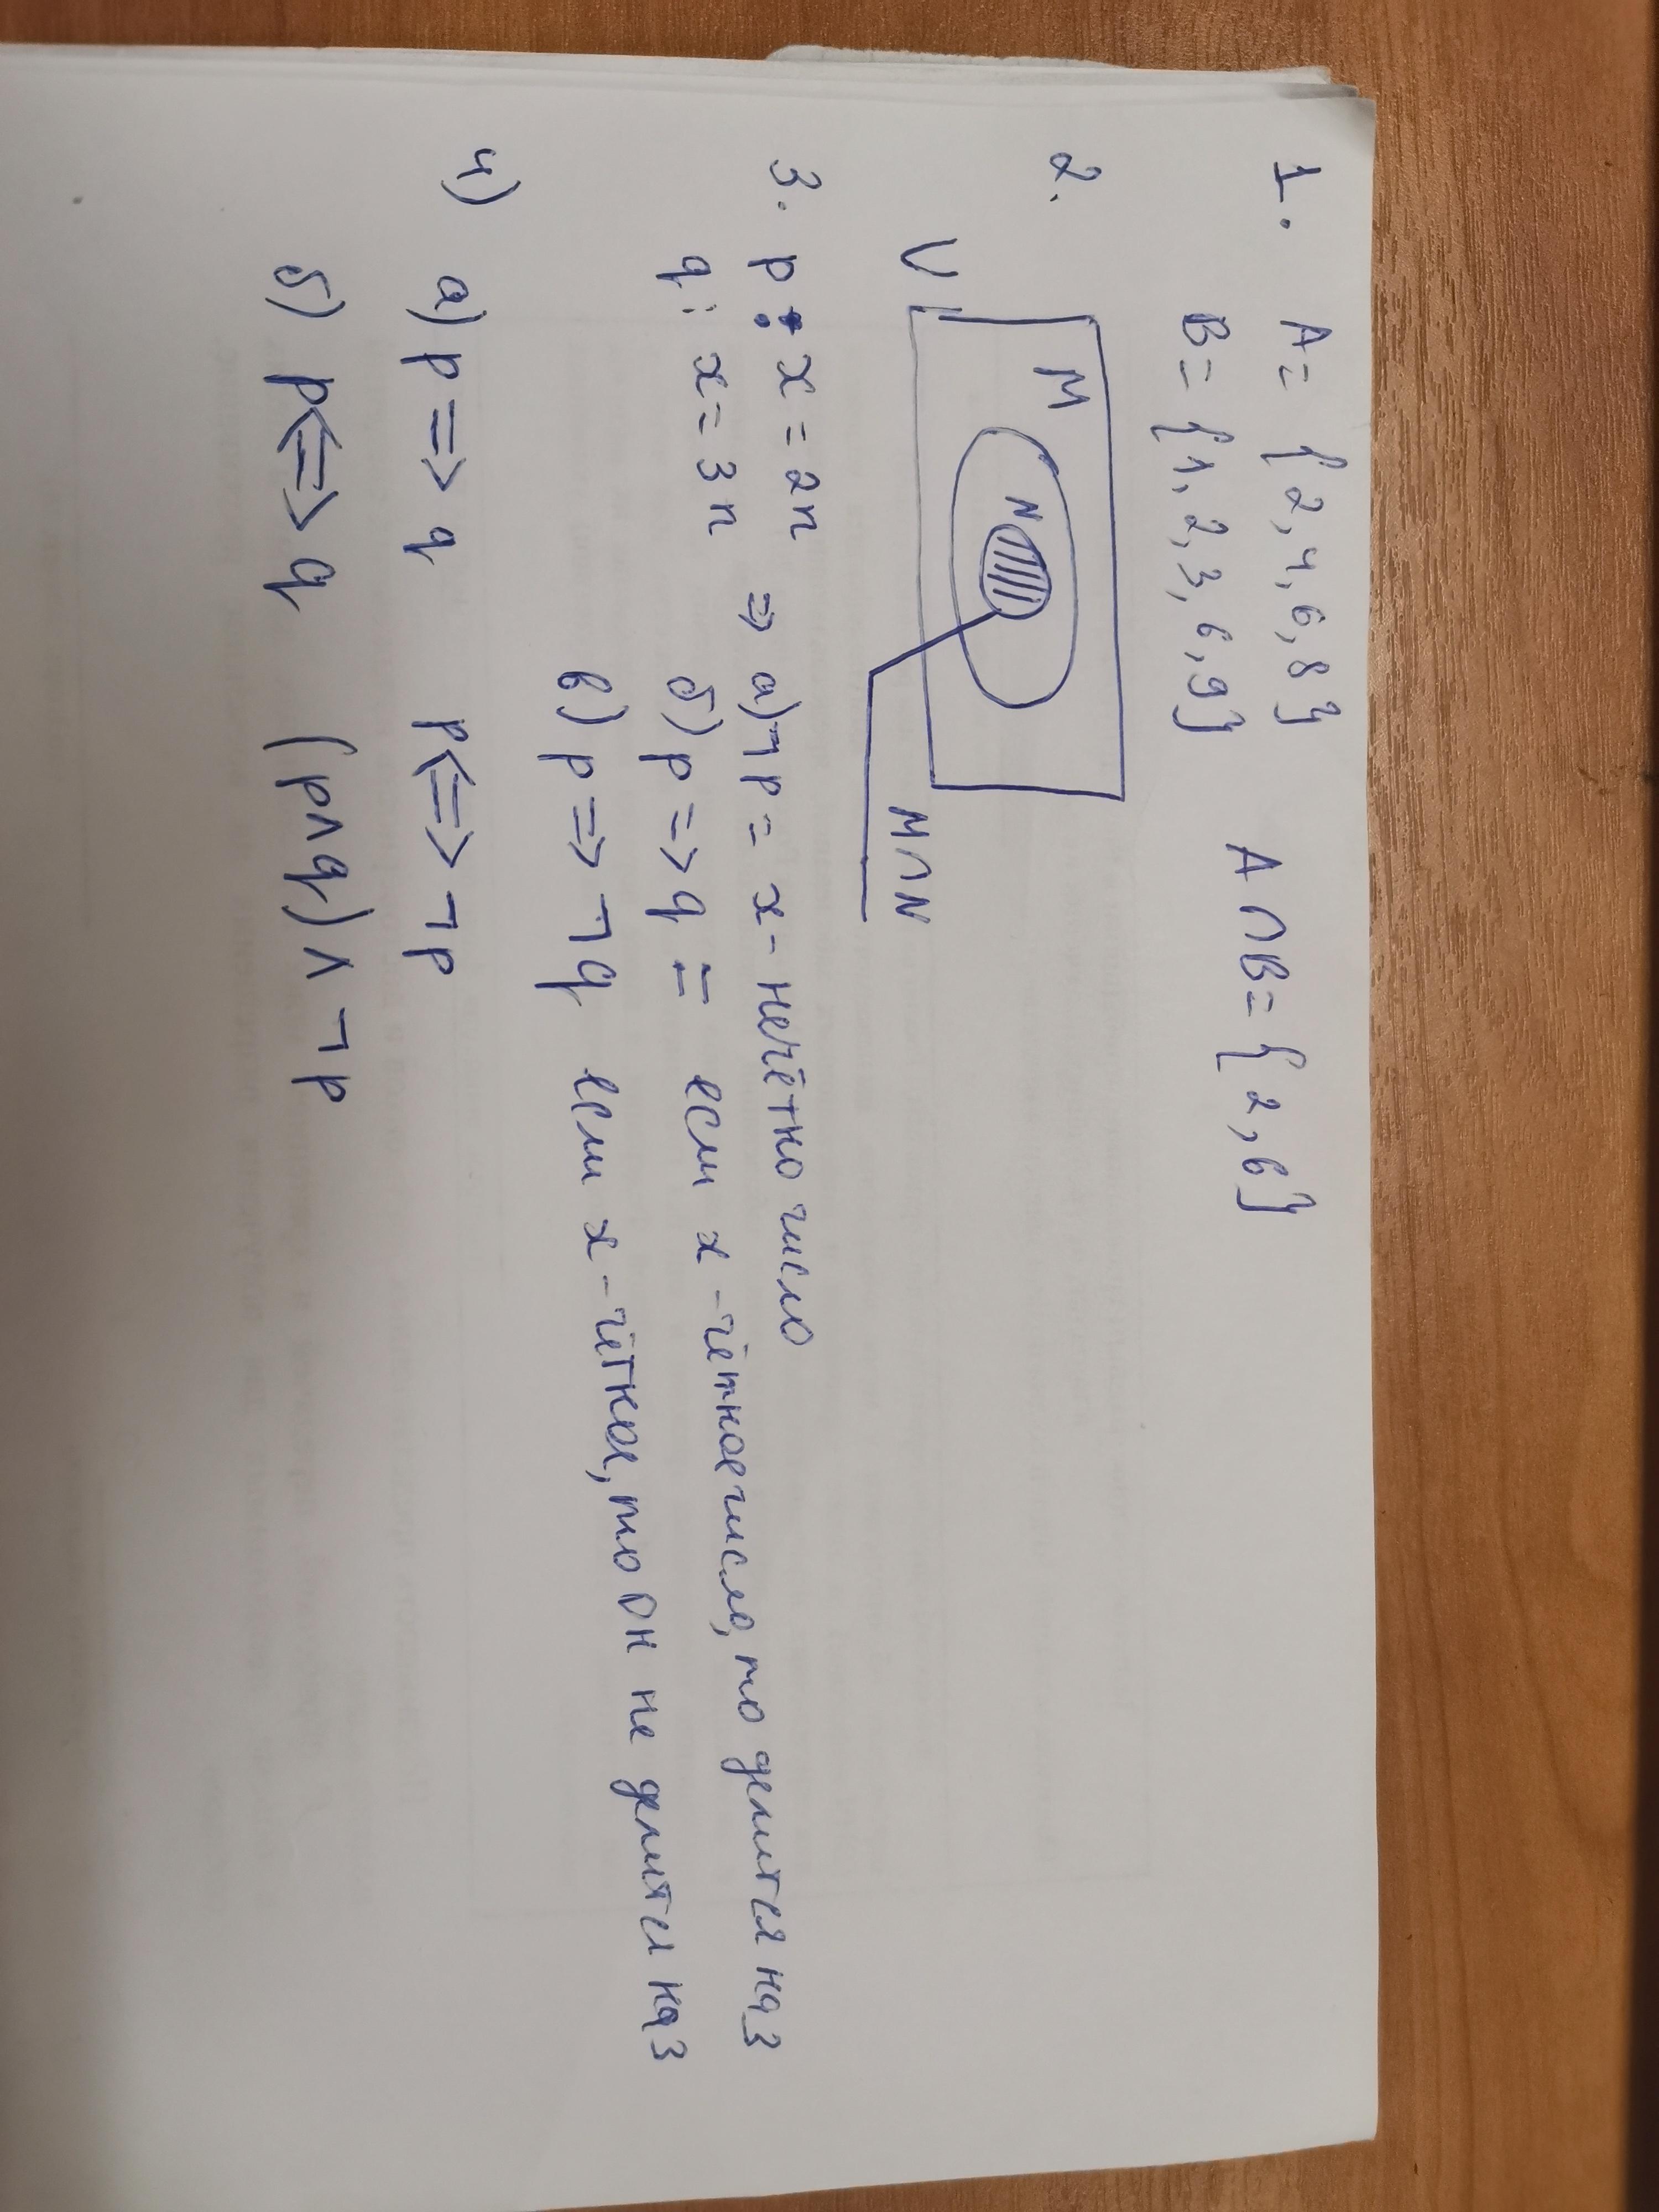 1. A = {2, 4, 6, 8}
B = {1, 2, 3, 6, 9}
A ∩ B = {2, 6}
2. M
N
U
M ∩ N
3. p: x = 2n
q: x = 3n
⇒ а) ¬p = x - нечётно число
б) p => q = если x - чётное число, то делится на 3
в) p => ¬q если x - чётное, то он не делится на 3
4) а) p => q p <=> ¬p
б) p <=> q (p ∧ q) ∧ ¬p